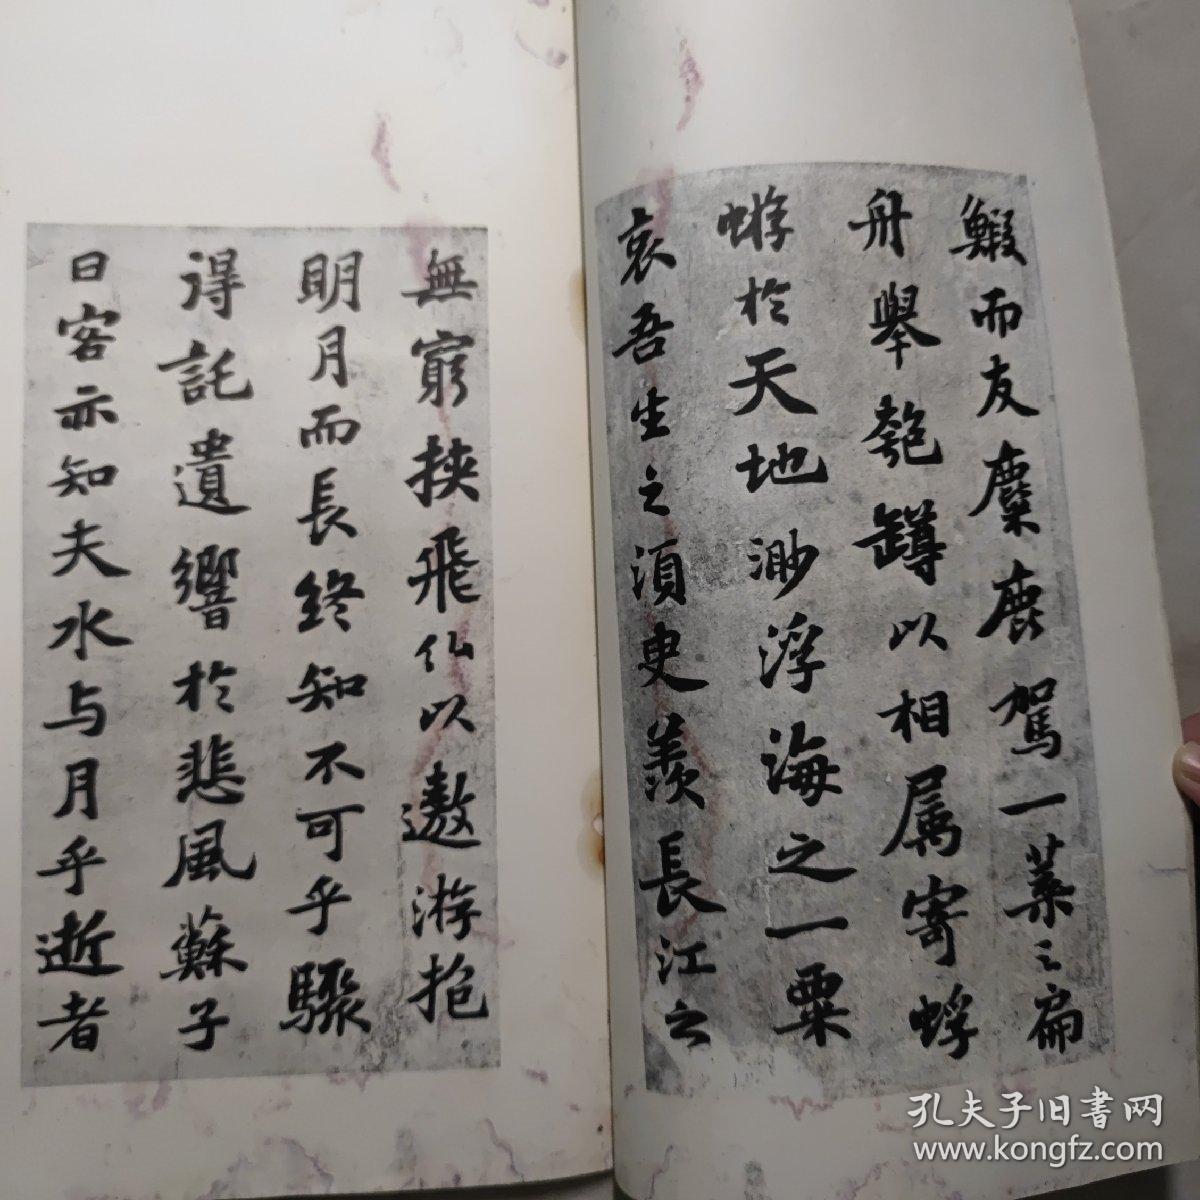 鰕而友麋鹿駕一葉之扁
舟舉匏罇以相属寄蜉
蝣於天地渺浮海之一粟
哀吾生之須臾羨長江之
無窮挾飛仙以遨游抱
明月而長終知不可乎驟
得託遺響於悲風蘇子
曰客亦知夫水与月乎逝者
孔夫子旧书网
www.kongfz.com